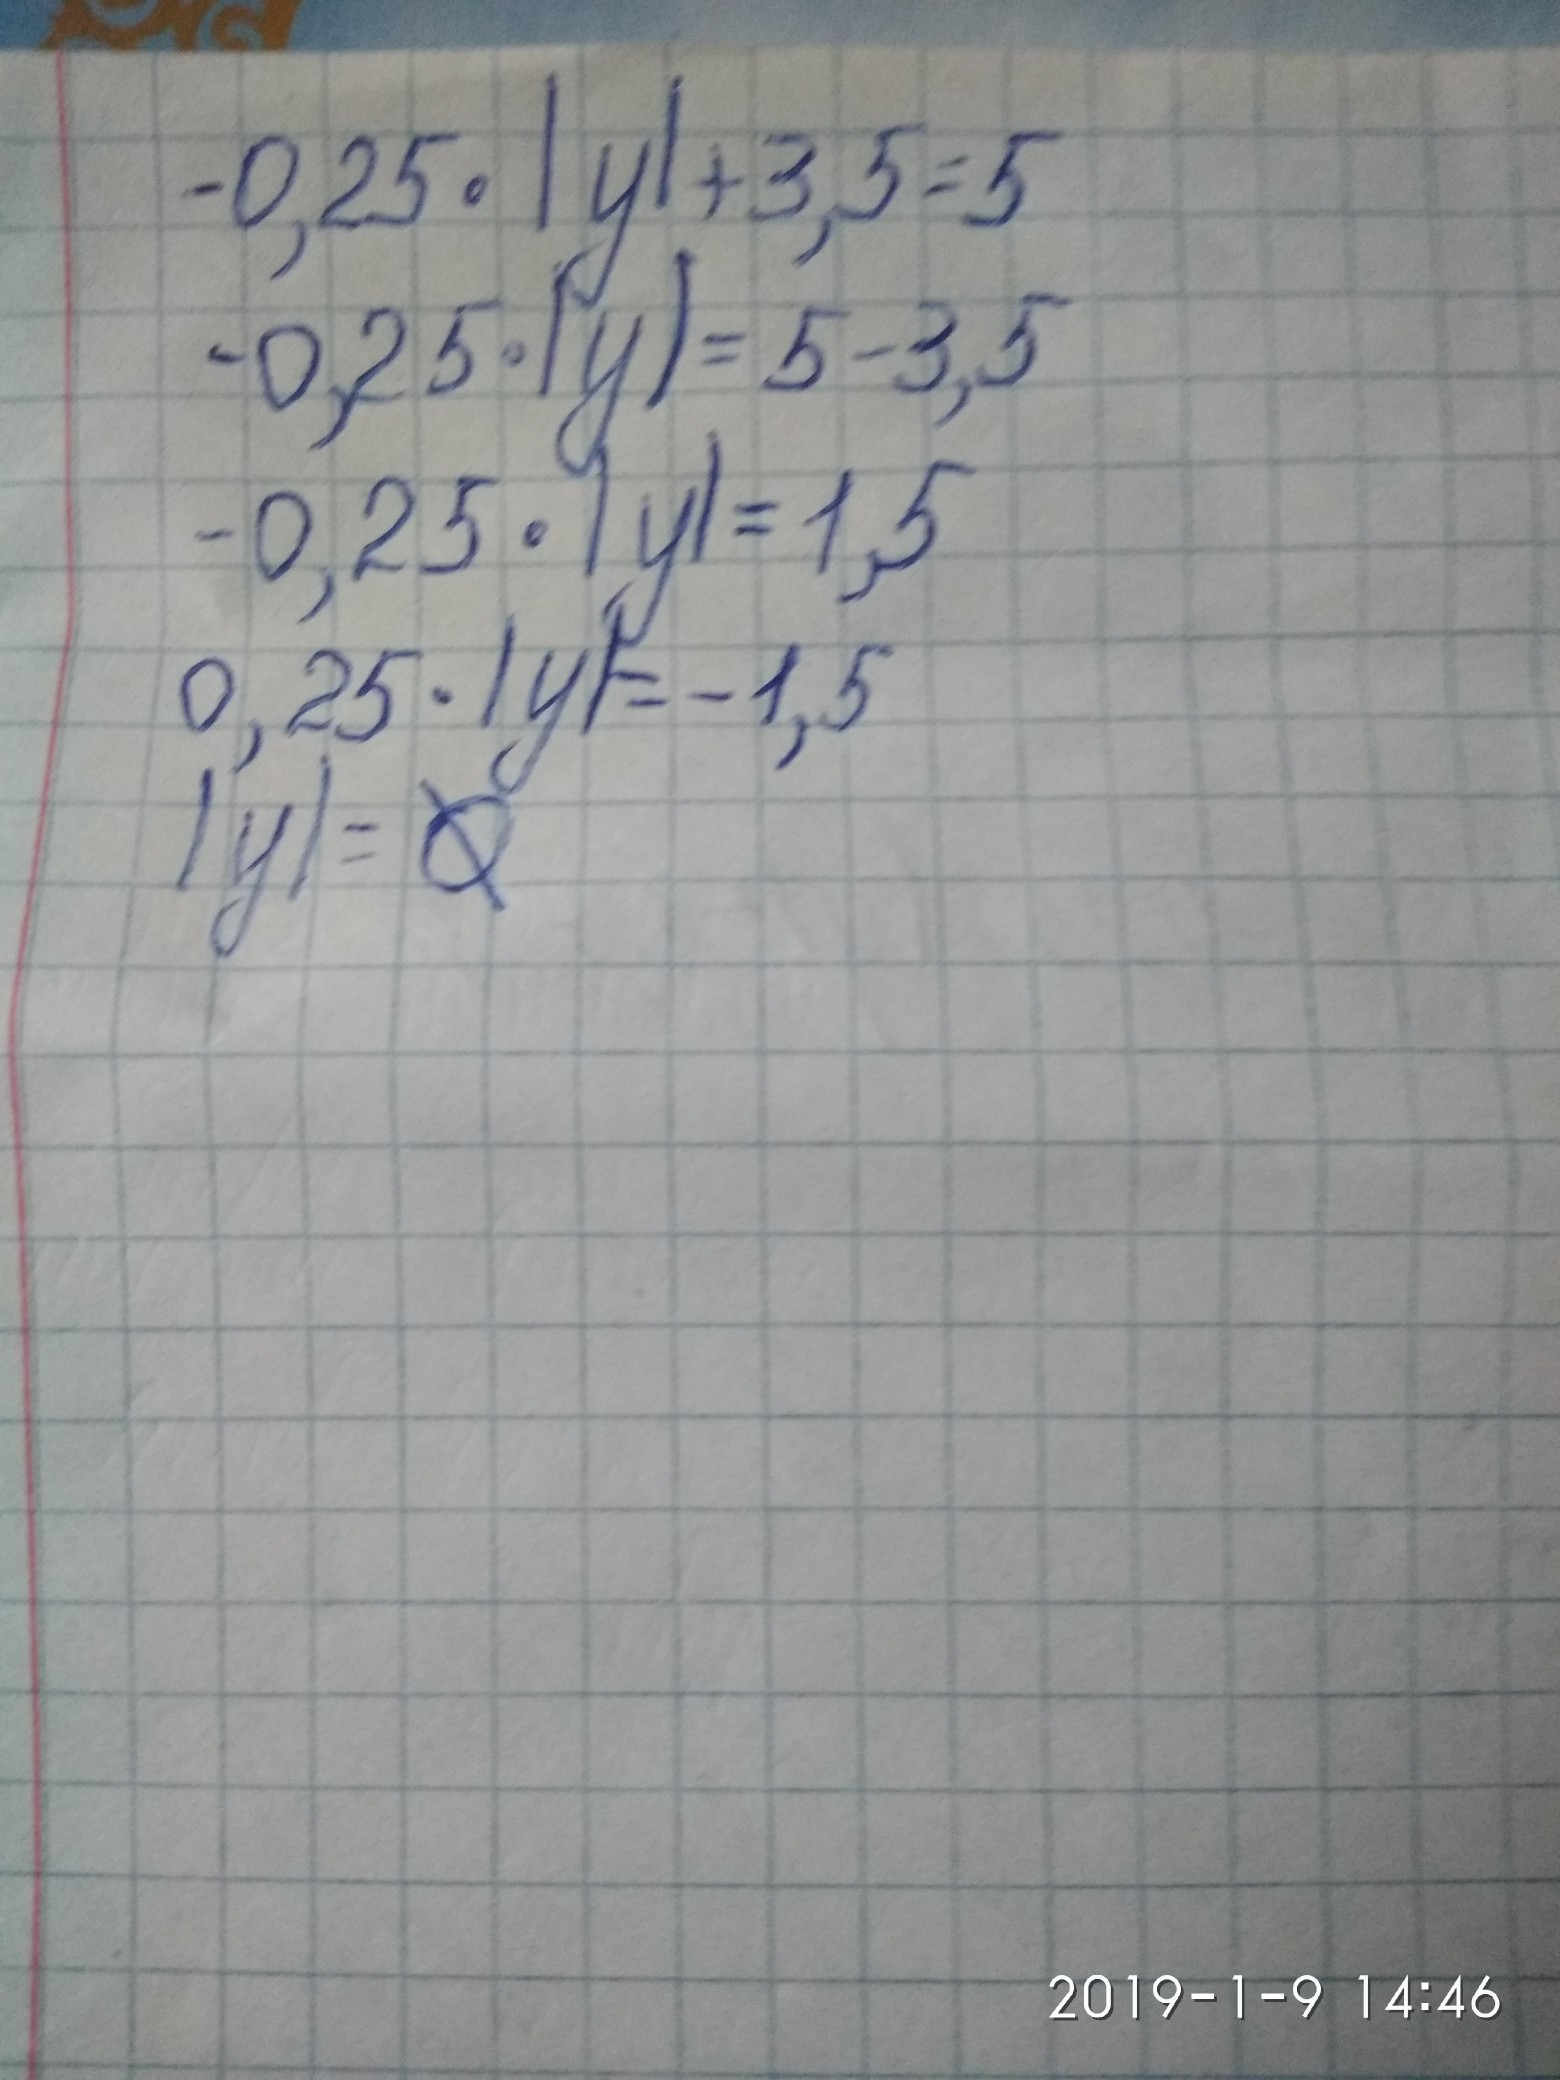 -0,25·|y|+3,5=5
-0,25·|y|=5-3,5
-0,25·|y|=1,5
0,25·|y|=-1,5
|y|=∅
2019-1-9 14:46